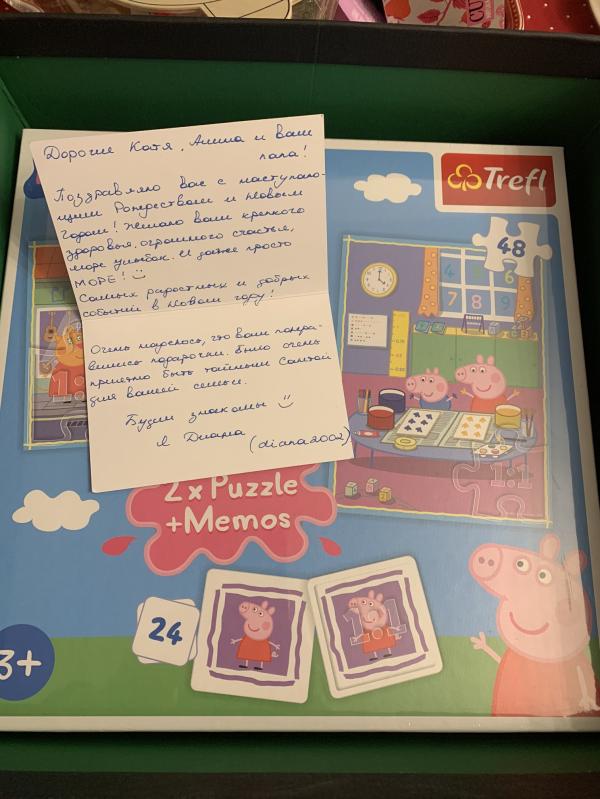 Дорогие Катя, Алина и ваш
папа!
Поздравляю вас с наступаю-
щим Рождеством и Новым
Годом! Желаю вам крепкого
здоровья, огромного счастья,
море улыбок. И даже просто
МОРЕ!
Самых радостных и добрых
событий в Новом году!
Очень надеюсь, что вам понра-
вились подарочки. Было очень
приятно быть тайным Сантой
для вашей семьи.
Будем знакомы
Я Диана
(diana2002)
Trefl
48
4 5 6
7 8 9
1:1
2 x Puzzle
+Memos
24
1:1
3+